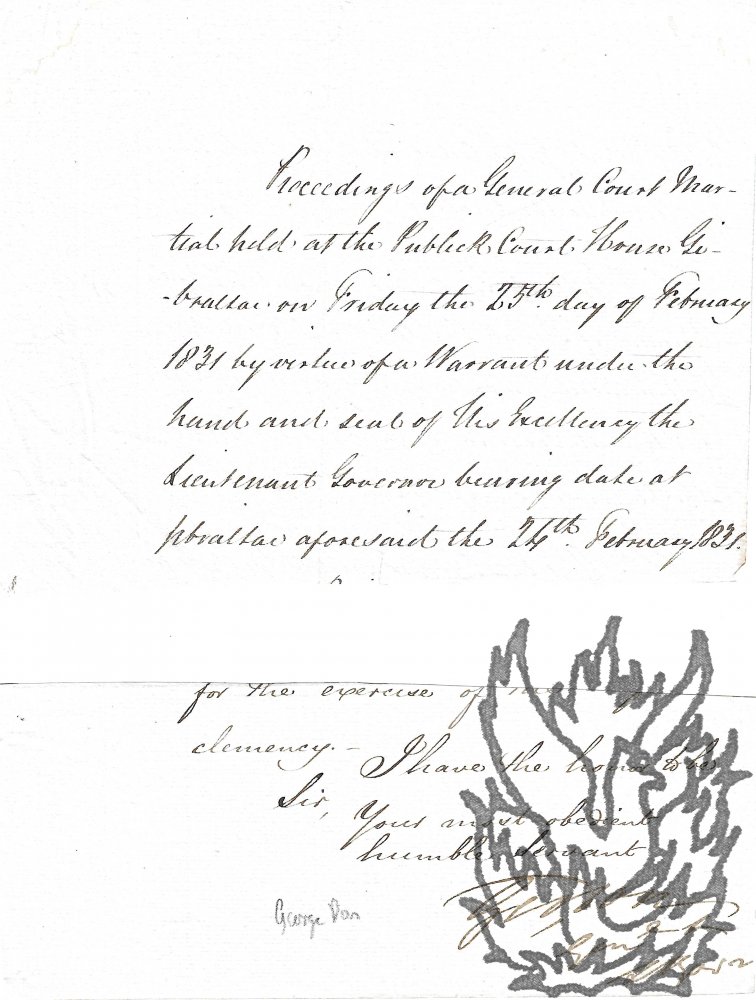 Proceedings of a General Court Mar-
tial held at the Publick Court House Gi-
-braltar on Friday the 25th. day of February
1831 by virtue of a Warrant under the
hand and seal of His Excellency the
Lieutenant Governor bearing date at
Gibraltar aforesaid the 24th. February 1831.
for the exercise of
clemency.-
I have the honor to be
Sir,
Your most obedient
humble Servant
George Don